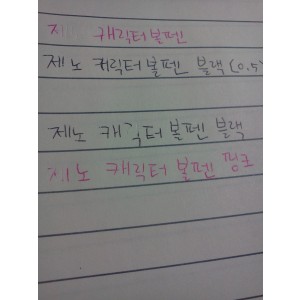 제노 캐릭터볼펜
제노 캐릭터볼펜 블랙(0.5)
제노 캐릭터 볼펜 블랙
제노 캐릭터 볼펜 핑크